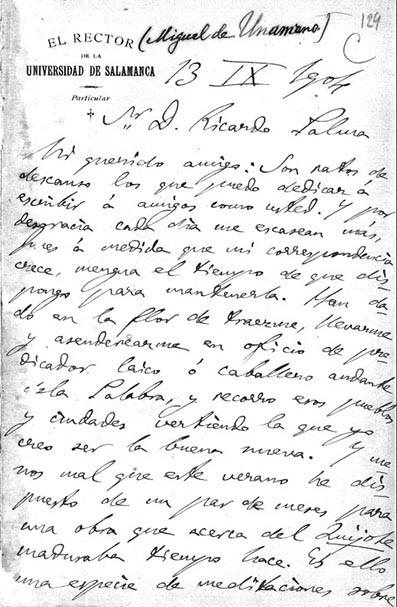 129
EL RECTOR (Miguel de Unamuno)
DE LA
UNIVERSIDAD DE SALAMANCA
C
Particular
13 IX 1904
Sr. D. Ricardo Palma
Mi querido amigo: Son ratos de
descanso los que puedo dedicar á
escribir á amigos como usted. Y por
desgracia cada día me escasean más,
pues á medida que mi correspondencia
crece, mengua el tiempo de que dis
pongo para mantenerla. Han da
do en la flor de traerme, llevarme
y asenderearme en oficio de pre
dicador laico ó caballero andante
de la Palabra, y recorro esos pueblos
y ciudades vertiendo la que yo
creo ser la buena nueva. Y me
nos mal que este verano he dis
puesto de un par de meses para
una obra que acerca del Quijote
maduraba tiempo hace. Es ello
una especie de meditaciones sobre